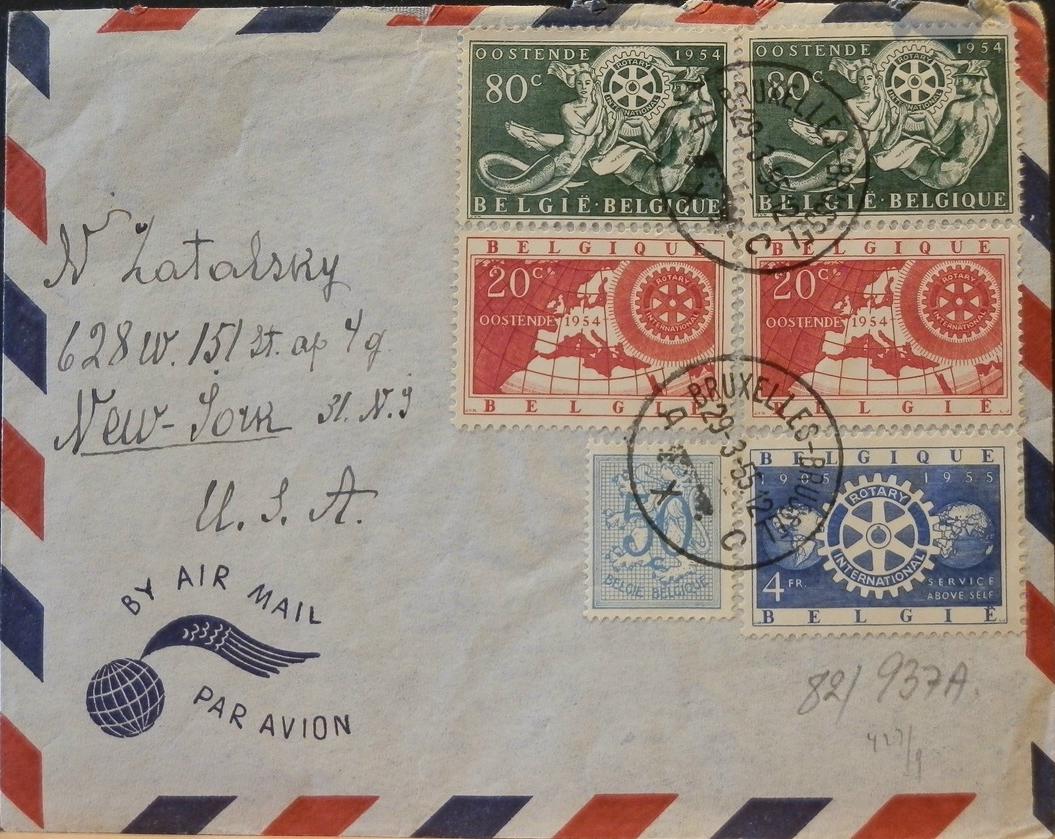 OOSTENDE 1954
80c
ROTARY INTERNATIONAL
BELGIË·BELGIQUE
OOSTENDE 1954
80c
ROTARY INTERNATIONAL
BELGIË·BELGIQUE
BELGIQUE
20c
ROTARY INTERNATIONAL
OOSTENDE 1954
BELGIË
BELGIQUE
20c
ROTARY INTERNATIONAL
OOSTENDE 1954
BELGIË
50
BELGIE BELGIQUE
BELGIQUE
1905 1955
ROTARY INTERNATIONAL
4 FR.
SERVICE
ABOVE SELF
BELGIË
BRUXELLES-BRUSSEL
29-3-55 12
C X C
BRUXELLES-BRUSSEL
29-3-55 12
A X C
N Zatalsky
628 W. 151 St. ap 4g
New-York 31. N.Y
U. S. A.
BY AIR MAIL
PAR AVION
82/937A.